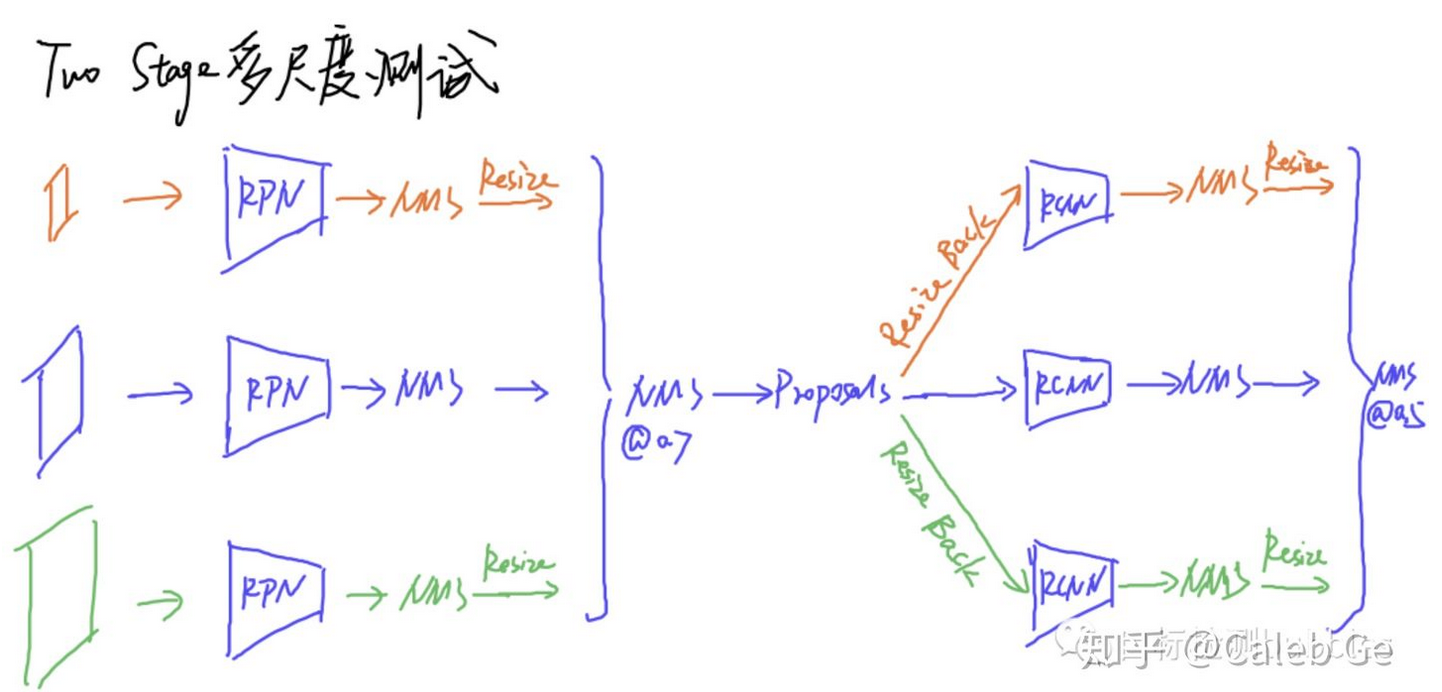 Two Stage多尺度测试
RPN NMS Resize
RPN NMS
RPN NMS Resize
NMS
@0.7
Proposals
Resize Back
Resize Back
RCNN NMS Resize
RCNN NMS
RCNN NMS Resize
NMS
@0.5
知乎 @Caleb Ge